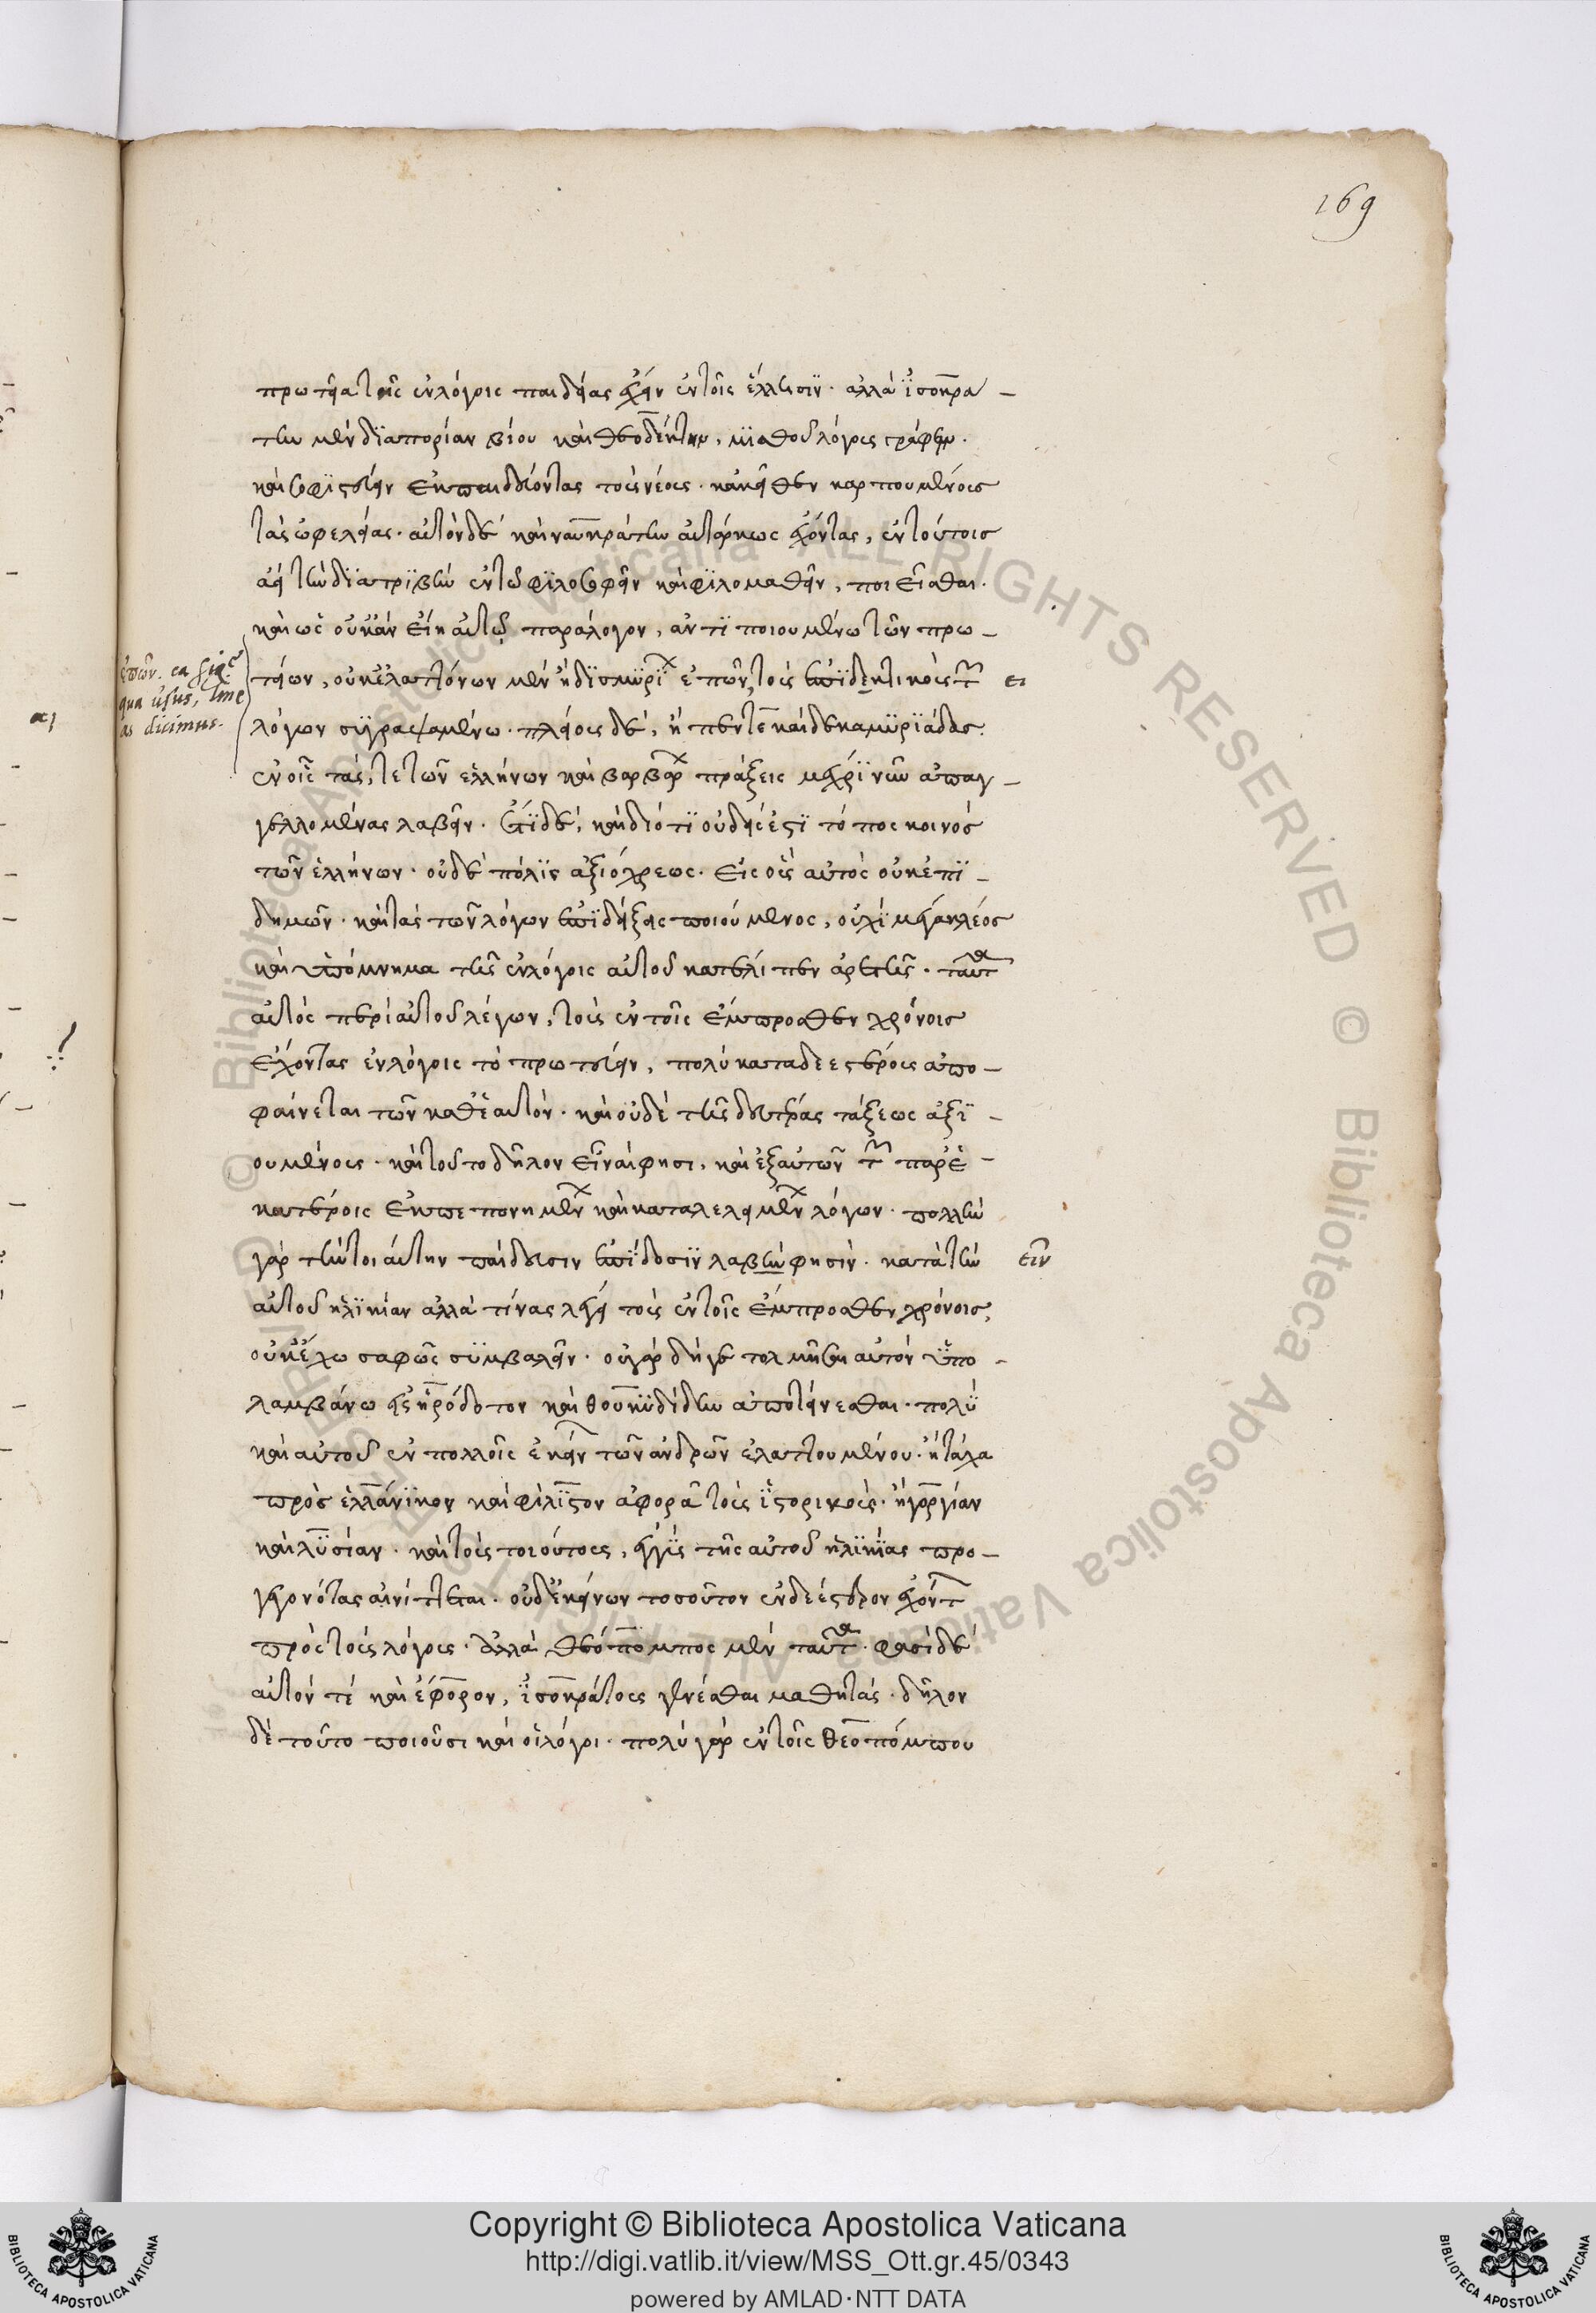 169
πρωτεῖα τῆς ἐν λόγοις παιδείας ἔχειν ἐν τοῖς ἕλλησιν· ἀλλὰ ἰσοκρά-
την μὲν δι' ἀπορίαν βίου καὶ θεοδέκτην, μισθοῦ λόγους γράφειν·
καὶ σοφιστεύειν ἐκπαιδεύοντας τοὺς νέους· κἀκεῖθεν καρπουμένους
τὰς ὠφελείας· αὐτὸν δὲ καὶ ναυκράτην αὐτάρκως ἔχοντας, ἐν τούτοις
ἀεὶ τὴν διατριβὴν ἐν τῷ φιλοσοφεῖν καὶ φιλομαθεῖν, ποιεῖσθαι·
καὶ ὡς οὐκ ἂν εἴη αὐτῷ παράλογον, ἀντιποιουμένω τῶν πρω-
τείων, οὐκ ἐλαττόνων μὲν ἢ δισμυρίων ἐπῶν, τοὺς ἐπιδεικτικοὺς τῶν
λόγων συγραψαμένω· πλείους δὲ, ἢ πεντεκαίδεκα μυριάδας·
ἐν οἷς τάς, τε τῶν ἑλλήνων καὶ βαρβάρων πράξεις μέχρι νῦν ἀπαγ-
γελλομένας λαβεῖν· ἔτι δὲ, καὶ διότι οὐδείς ἐστι τόπος κοινὸς
τῶν ἑλλήνων· οὐδὲ πόλις ἀξιόχρεως· εἰς οὓς αὐτὸς οὐκ ἐπι-
δημῶν· καὶ τὰς τῶν λόγων ἐπιδείξεις ποιούμενος, οὐχὶ μέγα κλέος
καὶ ὑπόμνημα τῆς ἐν λόγοις αὐτοῦ κατέλιπεν ἀρετῆς· ταῦτα
αὐτὸς περὶ αὐτοῦ λέγων, τοὺς ἐν τοῖς ἔμπροσθεν χρόνοις
ἔχοντας ἐν λόγοις τὸ πρωτεύειν, πολὺ καταδεεστέρους ἀπο-
φαίνεται τῶν καθ' ἑαυτόν· καὶ οὐδὲ τῆς δευτέρας τάξεως ἀξι-
ουμένους· καὶ τοῦτο δῆλον εἶναί φησι, καὶ ἐξ αὐτῶν τῶν παρ' ἑ-
κατέροις ἐκπεπονημένων καὶ καταλελειμμένων λόγων· πολλὴν
γὰρ τὴν τοιαύτην παίδευσιν ἐπίδοσιν λαβεῖν φησὶν· κατὰ τὴν
αὐτοῦ ἡλικίαν ἀλλὰ τίνας λέγει τοὺς ἐν τοῖς ἔμπροσθεν χρόνοις,
οὐκ ἔχω σαφῶς συμβαλεῖν· οὐ γὰρ δή γε τολμῆσαι αὐτὸν ὑπο-
λαμβάνω εἰς ἡρόδοτον καὶ θουκυδίδην ἀποτείνεσθαι· πολὺ
καὶ αὐτοῦ ἐν πολλοῖς ἐκείνων τῶν ἀνδρῶν ἐλαττουμένου· ἢ τάχα
πρὸς ἑλλάνικον καὶ φίλιστον ἀφορᾶ τοὺς ἱστορικούς· ἢ γοργίαν
καὶ λυσίαν· καὶ τοὺς τοιούτους, ἐγγὺς τῆς αὐτοῦ ἡλικίας προ-
γεγονότας αἰνίττεται· οὐδ' ἐκείνων τοσοῦτον ἐνδεέστερον ἐχόντων
πρὸς τοὺς λόγους· ἀλλὰ θεόπομπος μὲν ταῦτα· φασὶ δὲ
αὐτόν τε καὶ ἔφορον, ἰσοκράτους γενέσθαι μαθητάς· δῆλον
δὲ τοῦτο ποιοῦσι καὶ οἱ λόγοι· πολὺ γὰρ ἐν τοῖς θεοπόμπου
ει
ειν
qua usus, lineas dicimus.
Copyright © Biblioteca Apostolica Vaticana
http://digi.vatlib.it/view/MSS_Ott.gr.45/0343
powered by AMLAD·NTT DATA